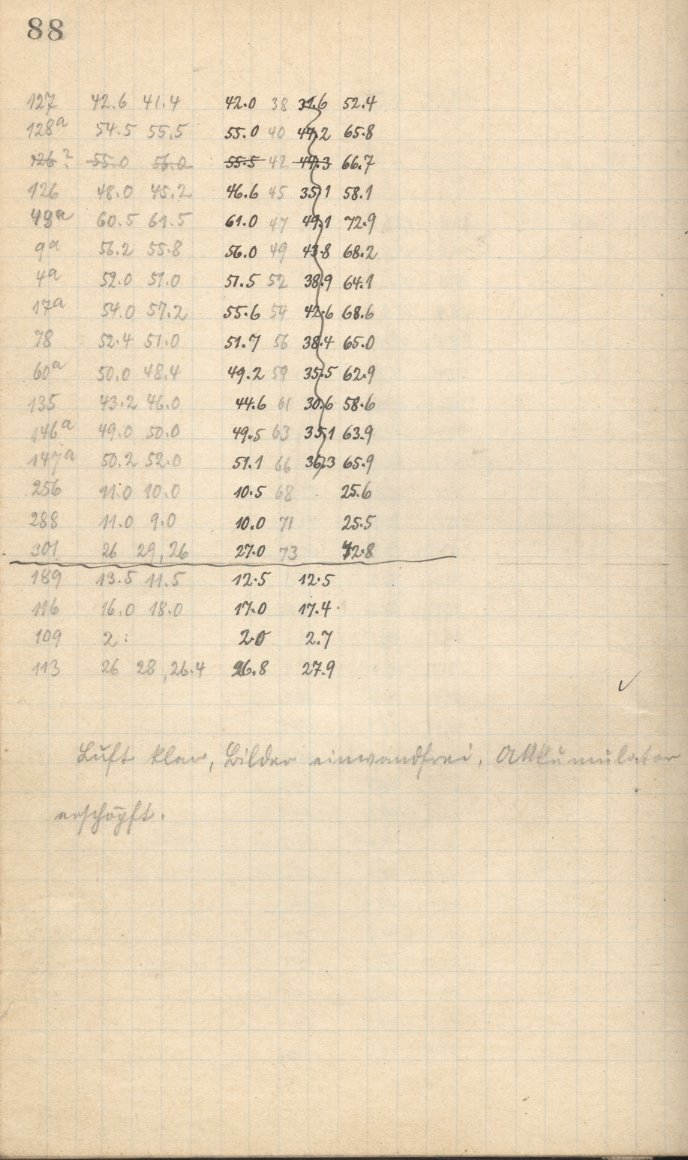 88
127 42.6 41.4 42.0 38 31.6 52.4
128a 54.5 55.5 55.0 40 44.2 65.8
126? 55.0 56.0 55.5 42 44.3 66.7
126 48.0 45.2 46.6 45 35.1 58.1
49a 60.5 61.5 61.0 47 49.1 72.9
9a 56.2 55.8 56.0 49 43.8 68.2
4a 52.0 51.0 51.5 52 38.9 64.1
17a 54.0 57.2 55.6 54 42.6 68.6
78 52.4 51.0 51.7 56 38.4 65.0
60a 50.0 48.4 49.2 59 35.5 62.9
135 43.2 46.0 44.6 61 30.6 58.6
146a 49.0 50.0 49.5 63 35.1 63.9
147a 50.2 52.0 51.1 66 36.3 65.9
256 11.0 10.0 10.5 68 25.6
288 11.0 9.0 10.0 71 25.5
301 26 29,26 27.0 73 42.8
189 13.5 11.5 12.5 12.5
116 16.0 18.0 17.0 17.4
109 2: 2.0 2.7
113 26 28,26.4 26.8 27.9
Luft klar, Bilder einwandfrei, Akkumulator
erschöpft.